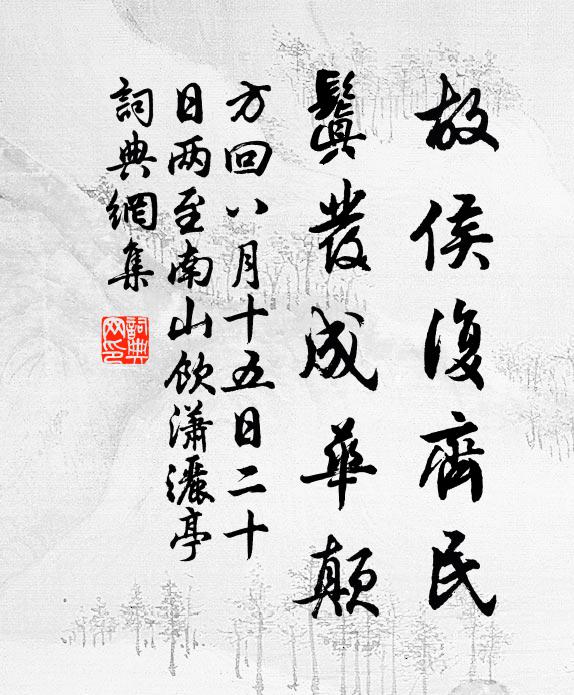 故侯復齊民
鬒發成華顛
方回八月十五日二十
日两至南山飲瀟灑亭
詞典網集
詞典
网印